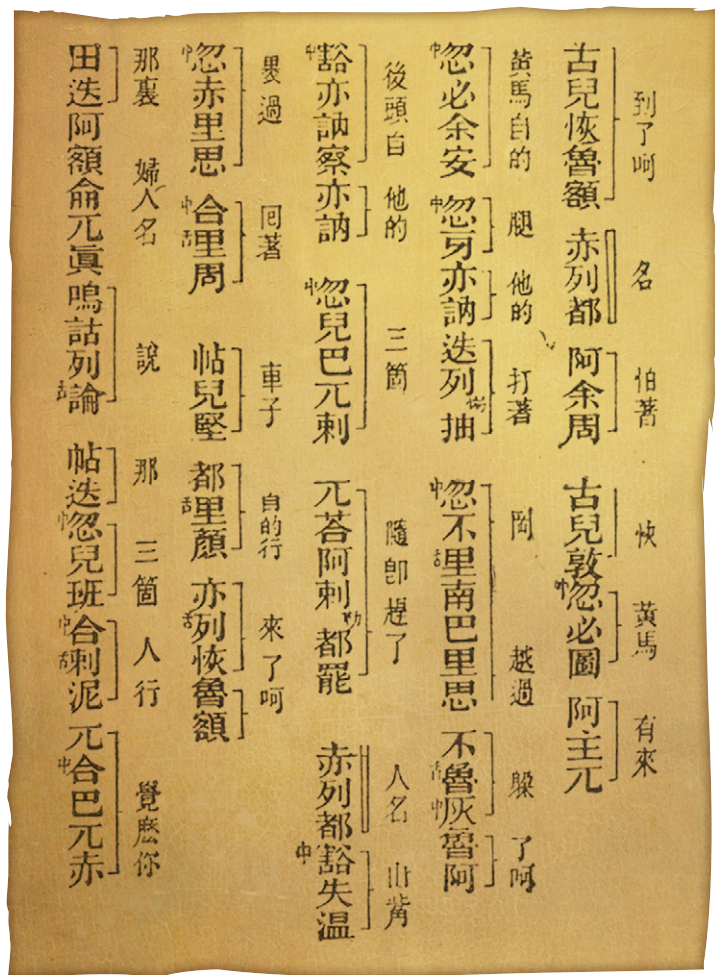 到了呵 名 怕著 快 黃馬 有來
古兒恢魯額 赤列都 阿余周 古兒敦中忽必圖 阿主兀
黃馬自的 腿 他的 打著 岡 越過 躱 了呵
中忽必余安 中忽牙亦訥 迭列惕抽 中忽不舌里南巴里思 不舌魯中灰魯阿
後頭自 他的 三箇 隨卽趕了 人名 山觜
中豁亦訥察亦訥 中忽兒巴兀剌 兀荅阿剌勒都罷 赤列都 中豁失温
裏過 囘著 車子 自的行 來了呵
中忽赤里思 中合舌里周 帖兒堅 都舌里顏 亦舌列恢魯額
那裏 婦人名 說 那 三箇人行 覺麽你
田迭阿額侖兀眞嗚詁列舌論 帖迭中忽兒班中合舌剌泥兀中合巴兀赤